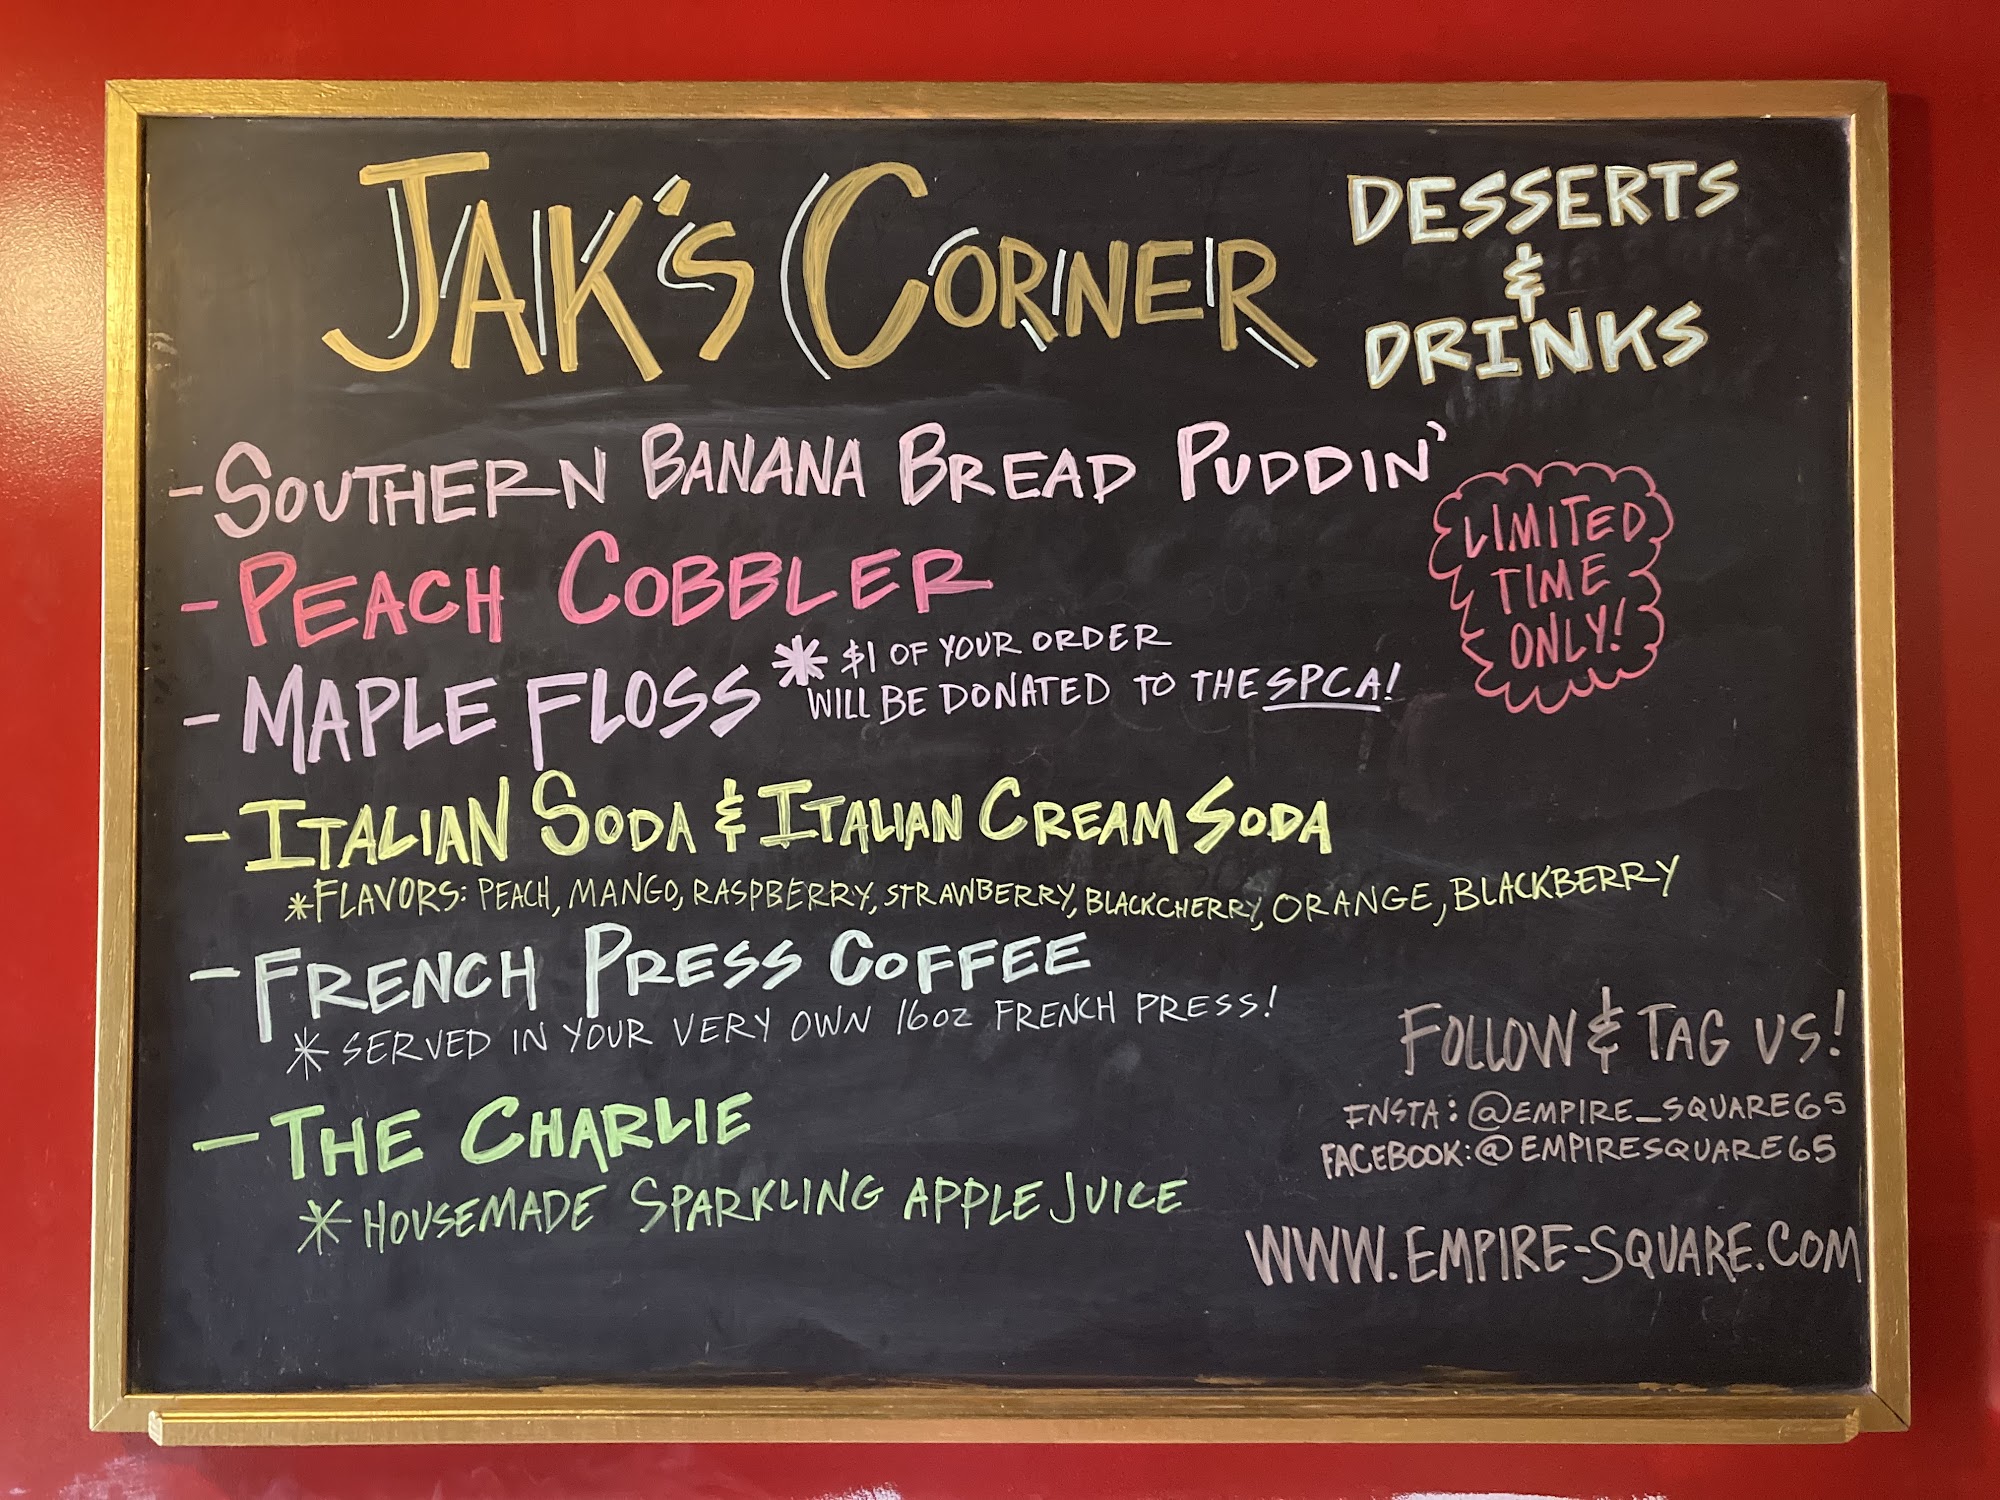 JAK'S CORNER
DESSERTS
&
DRINKS
- SOUTHERN BANANA BREAD PUDDIN'
- PEACH COBBLER
LIMITED
TIME
ONLY!
- MAPLE FLOSS * $1 OF YOUR ORDER
WILL BE DONATED TO THE SPCA!
- ITALIAN SODA & ITALIAN CREAM SODA
*FLAVORS: PEACH, MANGO, RASPBERRY, STRAWBERRY, BLACKCHERRY, ORANGE, BLACKBERRY
- FRENCH PRESS COFFEE
* SERVED IN YOUR VERY OWN 16oz FRENCH PRESS!
- THE CHARLIE
* HOUSEMADE SPARKLING APPLE JUICE
FOLLOW & TAG US!
INSTA: @EMPIRE_SQUARE65
FACEBOOK: @EMPIRESQUARE65
WWW.EMPIRE-SQUARE.COM